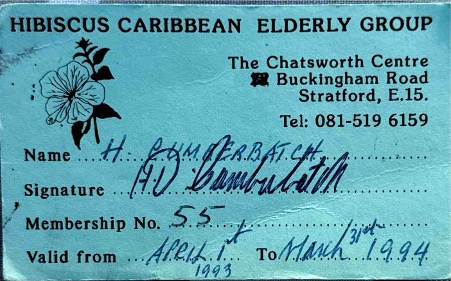 HIBISCUS CARIBBEAN ELDERLY GROUP
The Chatsworth Centre
Buckingham Road
Stratford, E.15.
Tel: 081-519 6159
Name ... H. CUMBERBATCH
Signature H D Cumberbatch
Membership No. 55
Valid from ... APRIL 1st 1993 To March 31st 1994